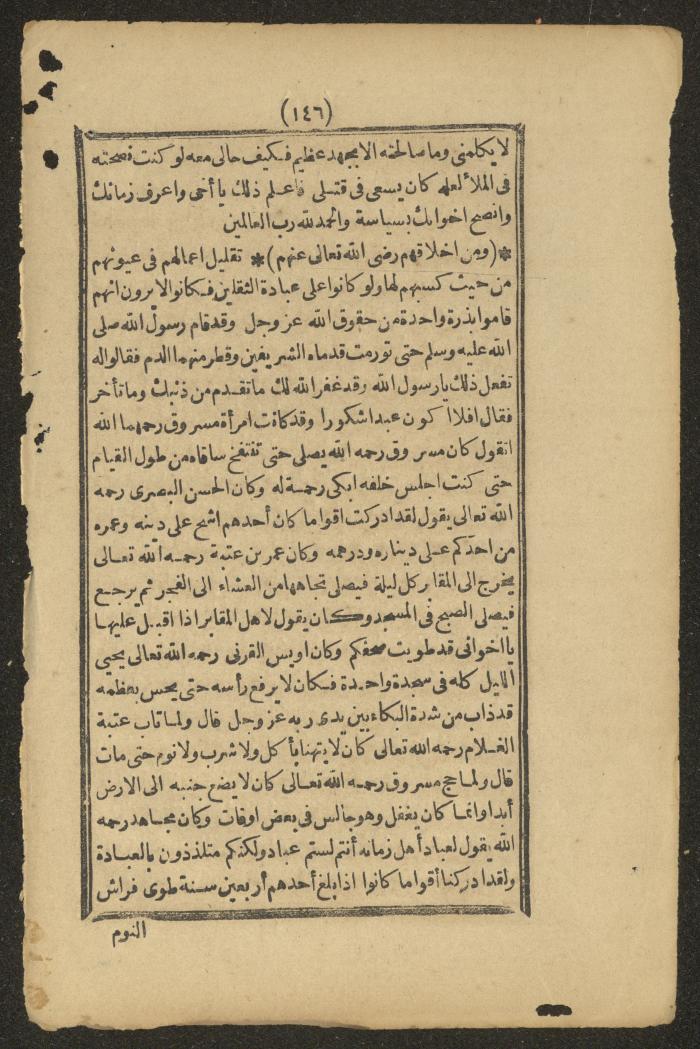 (١٤٦)
لا يكلمنى وما صالحته الا بجهد عظيم فكيف حالى معه لو كنت نصحته
فى الملأ لعله كان يسعى فى قتلى فاعلم ذلك يا أخى واعرف زمانك
وانصح اخوانك بسياسة والحمد لله رب العالمين
*(ومن اخلاقهم رضى الله تعالى عنهم)* تقليل اعمالهم فى عيونهم
من حيث كسبهم لها ولو كانوا على عبادة الثقلين فكانوا لا يرون انهم
قاموا بذرة واحدة من حقوق الله عز وجل وقد قام رسول الله صلى
الله عليه وسلم حتى تورمت قدماه الشريفين وقطر منهما الدم فقالوا له
تفعل ذلك يا رسول الله وقد غفر الله لك ما تقدم من ذنبك وما تأخر
فقال افلا اكون عبدا شكورا وقد كانت امرأة مسروق رحمهما الله
تقول كان مسروق رحمه الله يصلى حتى تنتفخ ساقاه من طول القيام
حتى كنت اجلس خلفه ابكى رحمة له وكان الحسن البصرى رحمه
الله تعالى يقول لقد ادركت اقواما كان أحدهم اشح على دينه وعمره
من احدكم على ديناره ودرهمه وكان عمر بن عتبة رحمه الله تعالى
يخرج الى المقابر كل ليلة فيصلى تجاهها من العشاء الى الفجر ثم يرجع
فيصلى الصبح فى المسجد وكان يقول لاهل المقابر اذا اقبل عليها
يا اخوانى قد طويت صحفكم وكان اويس القرنى رحمه الله تعالى يحيى
الليل كله فى سجدة واحدة فكان لا يرفع رأسه حتى يحس بعظمه
قد ذاب من شدة البكاء بين يدى ربه عز وجل قال ولما تاب عتبة
الغلام رحمه الله تعالى كان لا يتهنا بأكل ولا شرب ولا نوم حتى مات
قال ولما حج مسروق رحمه الله تعالى كان لا يضع جنبه الى الارض
أبدا وانما كان يغفل وهو جالس فى بعض اوقات وكان مجاهد رحمه
الله يقول لعباد أهل زمانه أنتم لستم عباد ولكنكم متلذذون بالعبادة
ولقد ادركنا أقواما كانوا اذا بلغ أحدهم أربعين سنة طوى فراش
النوم